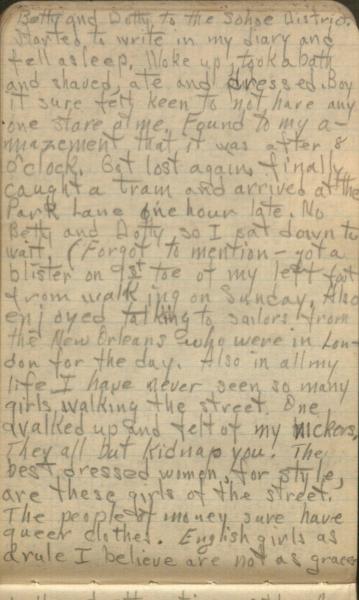 Betty and Dotty to the Sohoe District.
Started to write in my diary and
fell asleep. Woke up, took a bath
and shaved, ate and dressed. Boy
it sure felt keen to not have any
one stare at me. Found to my a-
mazement that it was after 8
o'clock. Got lost again, finally
caught a tram and arrived at the
Park Lane one hour late. No
Betty and Dotty so I sat down to
wait. (Forgot to mention - got a
blister on 1st toe of my left foot
from walking on Sunday. Also
enjoyed talking to sailors from
the New Orleans who were in Lon-
don for the day. Also in all my
life I have never seen so many
girls walking the street. One
walked up and felt of my nickers.
They all but kidnap you. The
best dressed women, for style,
are these girls of the street.
The people of money sure have
queer clothes. English girls as
a rule I believe are not as grace-